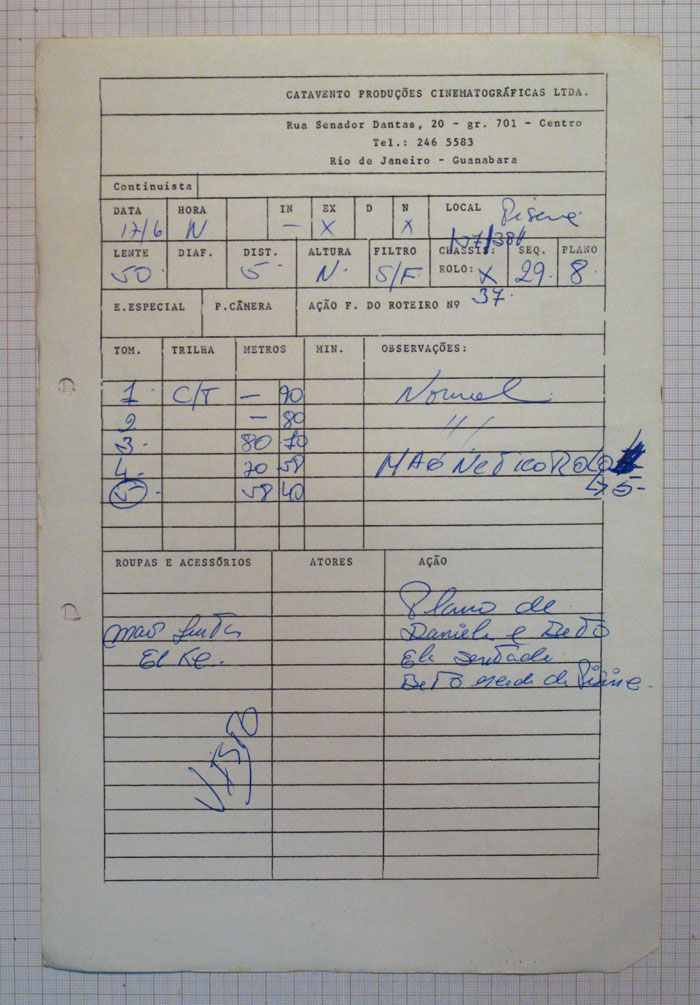 CATAVENTO PRODUÇÕES CINEMATOGRÁFICAS LTDA.
Rua Senador Dantas, 20 - gr. 701 - Centro
Tel.: 246 5583
Rio de Janeiro - Guanabara
Continuista
DATA HORA IN EX D N LOCAL
17/6 N — X X
LENTE DIAF. DIST. ALTURA FILTRO CHASSIS: SEQ. PLANO
50. 5. N. S/F. ROLO: X 29. 8.
37.
E.ESPECIAL P.CÂMERA AÇÃO F. DO ROTEIRO Nº
TOM. TRILHA METROS MIN. OBSERVAÇÕES:
1. C/T — 90 Normal
2 — 80 "
3. 80 70
4. 70 58 MAGNETICO ROLO
5. 58 40 5-
ROUPAS E ACESSÓRIOS ATORES AÇÃO
Plano de
Daniele e Beto
Ela sentada
Beto
VISTO